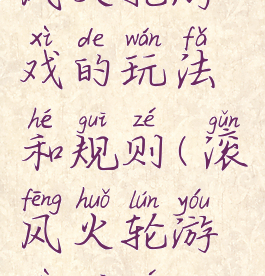 xì de wán fǎ
戏的玩法
hé guī zé gǔn
和规则(滚
fēng huǒ lún yóu
风火轮游